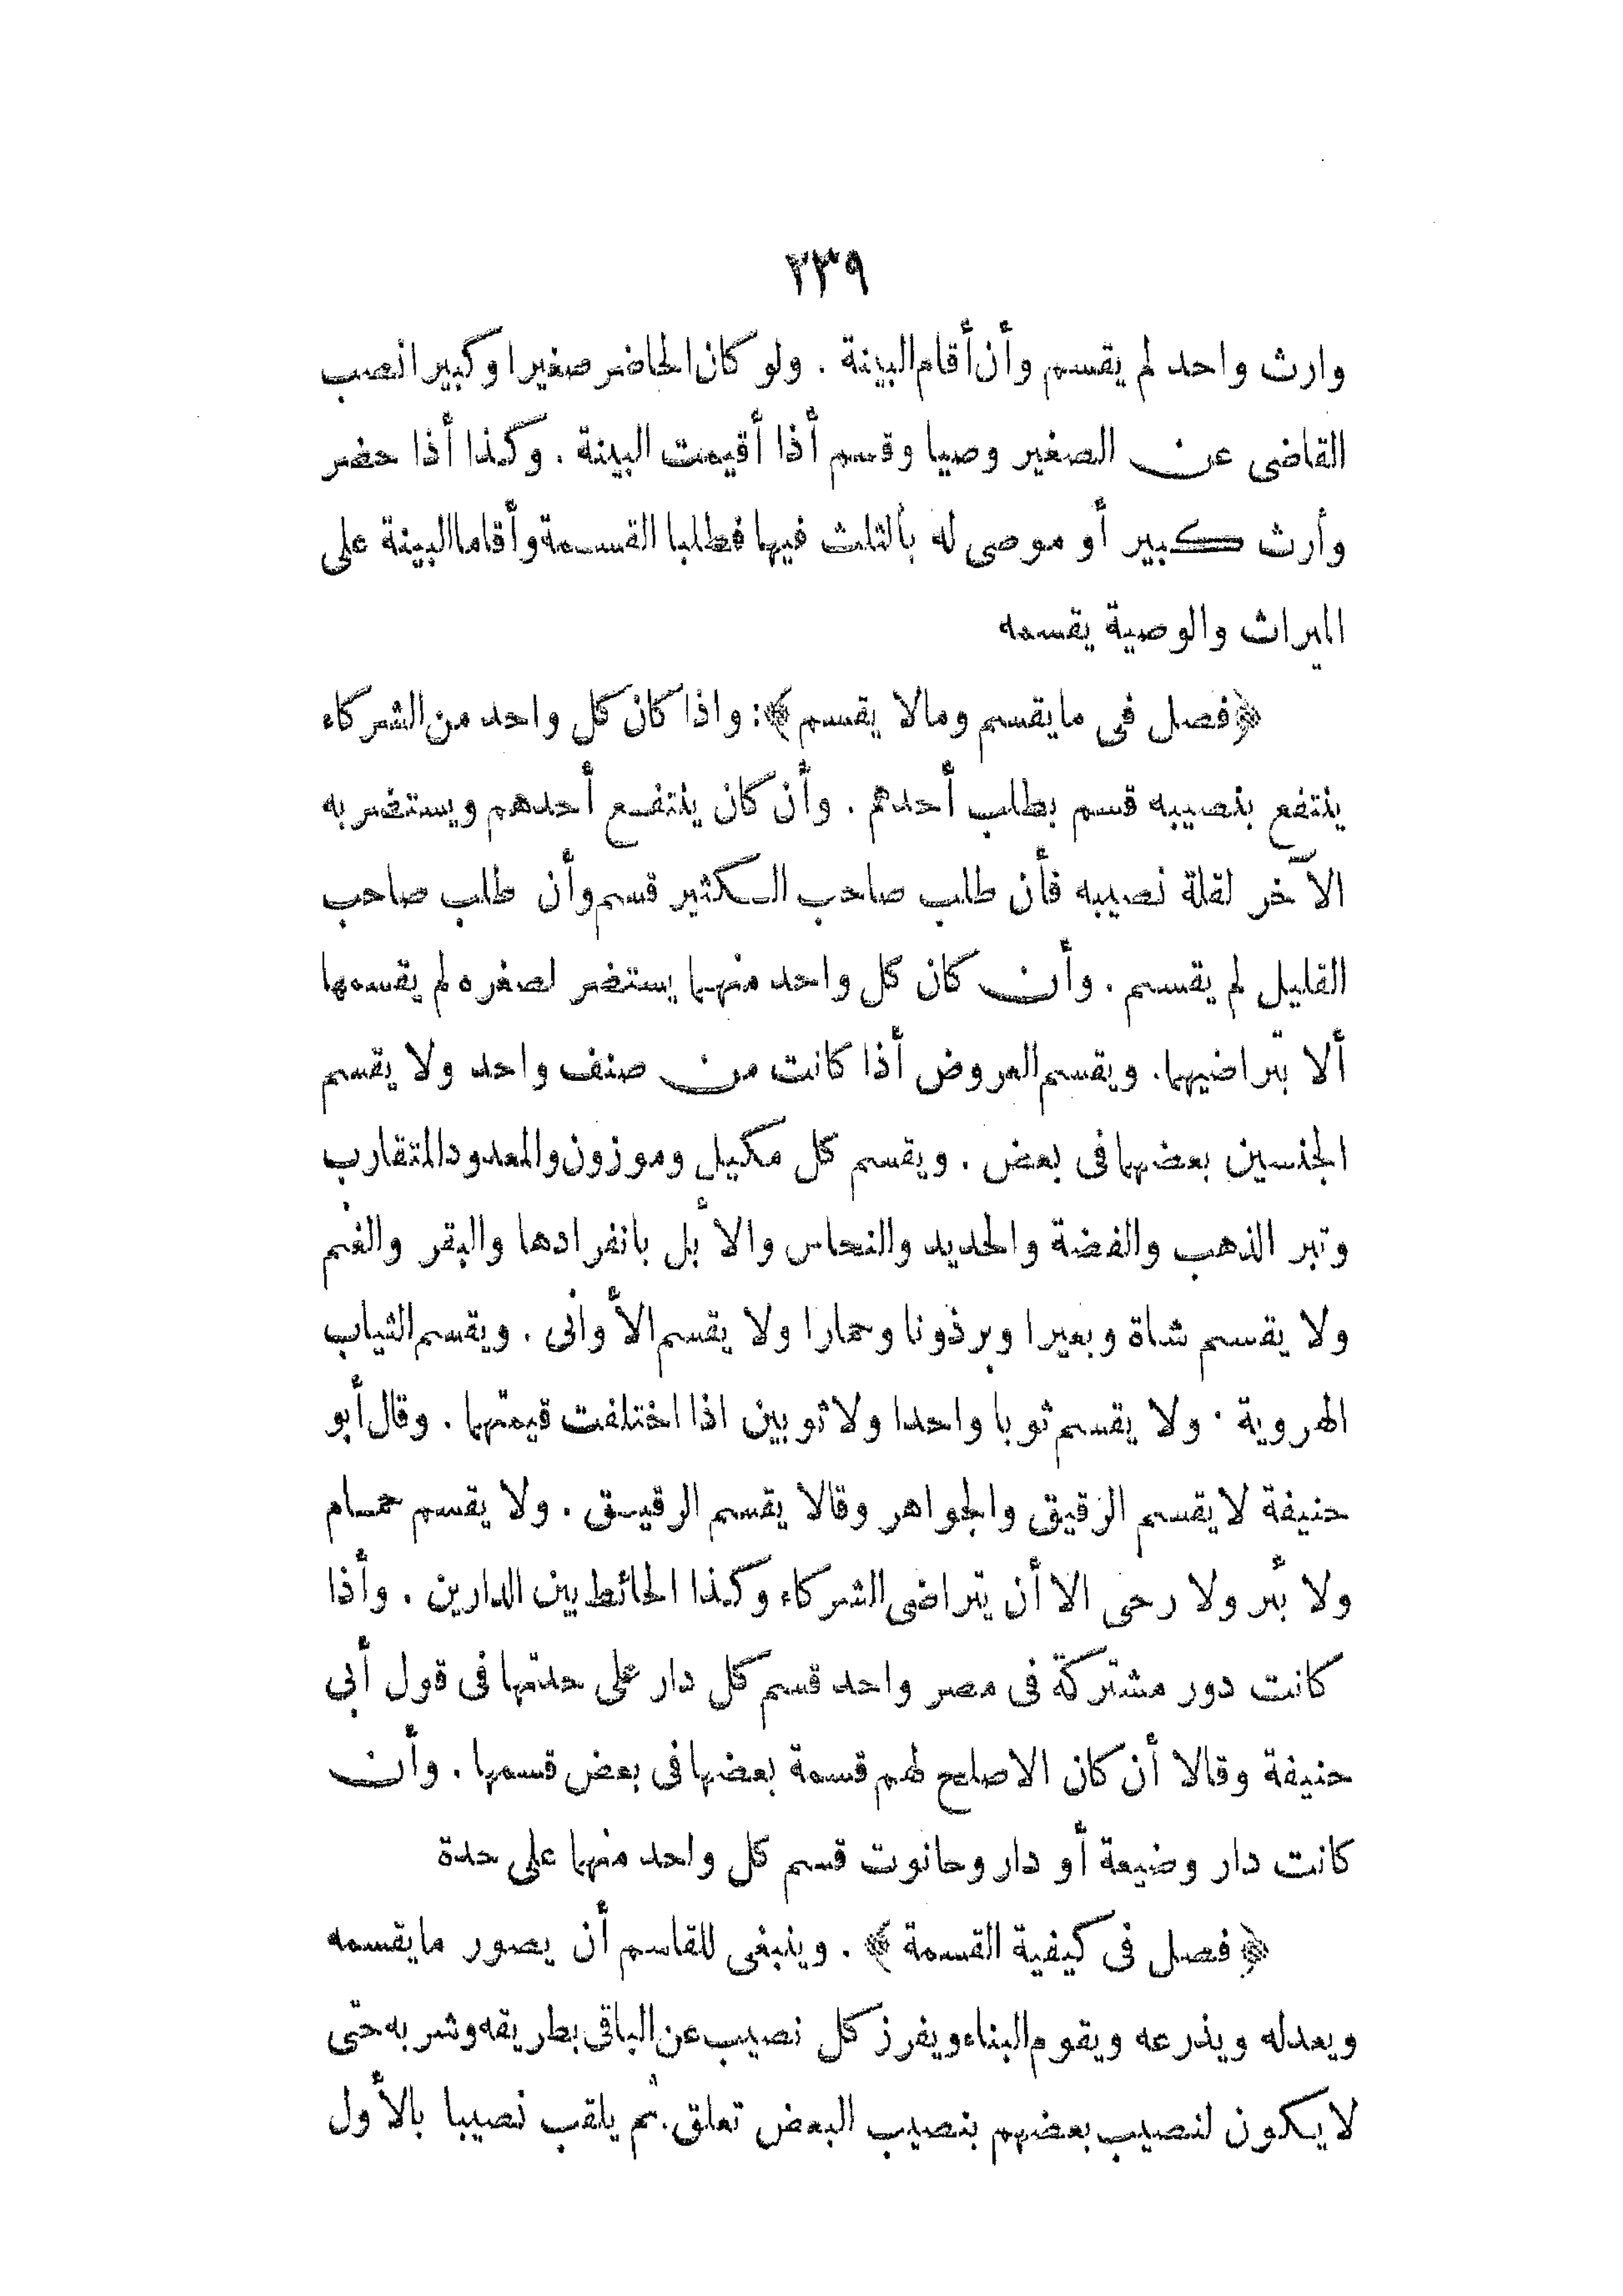 ٢٣٩
وارث واحد لم يقسم وأن أقام البينة . ولو كان الحاضر صغيرا وكبيرا نصب
القاضى عن الصغير وصيا وقسم أذا أقيمت البينة . وكذا أذا حضر
وأرث كبير أو موصى له بالثلث فيها فطلبا القسمة وأقاما البينة على
الميراث والوصية يقسمه
﴿فصل فى مايقسم ومالا يقسم﴾: واذا كان كل واحد من الشركاء
ينتفع بنصيبه قسم بطلب أحدهم . وأن كان ينتفع أحدهم ويستضر به
الآخر لقلة نصيبه فأن طلب صاحب الكثير قسم وأن طلب صاحب
القليل لم يقسم . وأن كان كل واحد منهما يستضر لصغره لم يقسمها
ألا بتراضيهما. ويقسم العروض أذا كانت من صنف واحد ولا يقسم
الجنسين بعضهما فى بعض . ويقسم كل مكيل وموزون والمعدود المتقارب
وتبر الذهب والفضة والحديد والنحاس والأبل بانفرادها والبقر والغنم
ولا يقسم شاة وبعيرا وبرذونا وحمارا ولا يقسم الأوانى . ويقسم الثياب
الهروية . ولا يقسم ثوبا واحدا ولا ثوبين اذا اختلفت قيمتهما . وقال أبو
حنيفة لا يقسم الرقيق والجواهر وقالا يقسم الرقيق . ولا يقسم حمام
ولا بئر ولا رحى الا أن يتراضى الشركاء وكذا الحائط بين الدارين . وأذا
كانت دور مشتركة فى مصر واحد قسم كل دار على حدتها فى قول أبى
حنيفة وقالا أن كان الاصلح لهم قسمة بعضها فى بعض قسمها . وأن
كانت دار وضيعة أو دار وحانوت قسم كل واحد منهما على حدة
﴿فصل فى كيفية القسمة﴾ . وينبغى للقاسم أن يصور مايقسمه
ويعدله ويذرعه ويقوم البناء ويفرز كل نصيب عن الباقى بطريقه وشربه حتى
لا يكون لنصيب بعضهم بنصيب البعض تعلق. ثم يلقب نصيبا بالأول